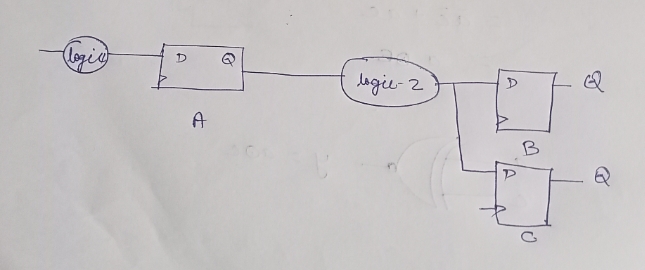 logic
D Q
A
logic-2
D Q
B
D Q
C